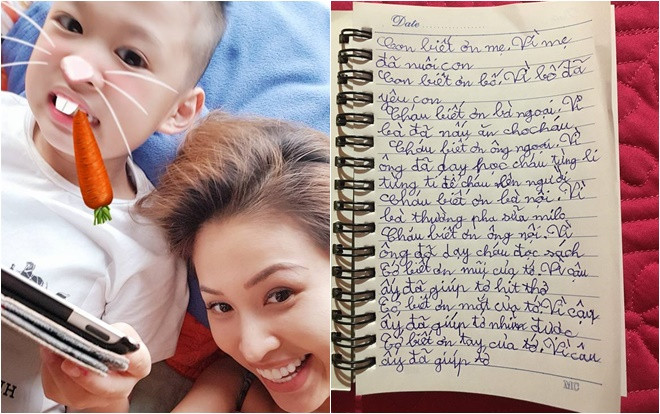 Date
Con biết ơn mẹ. Vì mẹ
đã nuôi con
Con biết ơn bố, Vì bố đã
yêu con
Cháu biết ơn bà ngoại. Vì
bà đã nấu ăn cho cháu.
Cháu biết ơn ông ngoại. Vì
ông đã dạy học cháu từng li
từng tí để cháu lên người
Cháu biết ơn bà nội. Vì
bà thường pha sữa milo
Cháu biết ơn ông nội. Vì
ông đã dạy cháu đọc sách
Tớ biết ơn mũi của tớ. Vì cậu
ấy đã giúp tớ hít thở
Tớ biết ơn mắt của tớ. Vì cậu
ấy đã giúp tớ nhìn được
Tớ biết ơn tay của tớ. Vì cậu
ấy đã giúp tớ